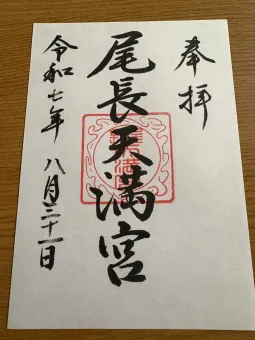 奉拝
尾長天満宮
令和七年八月三十一日